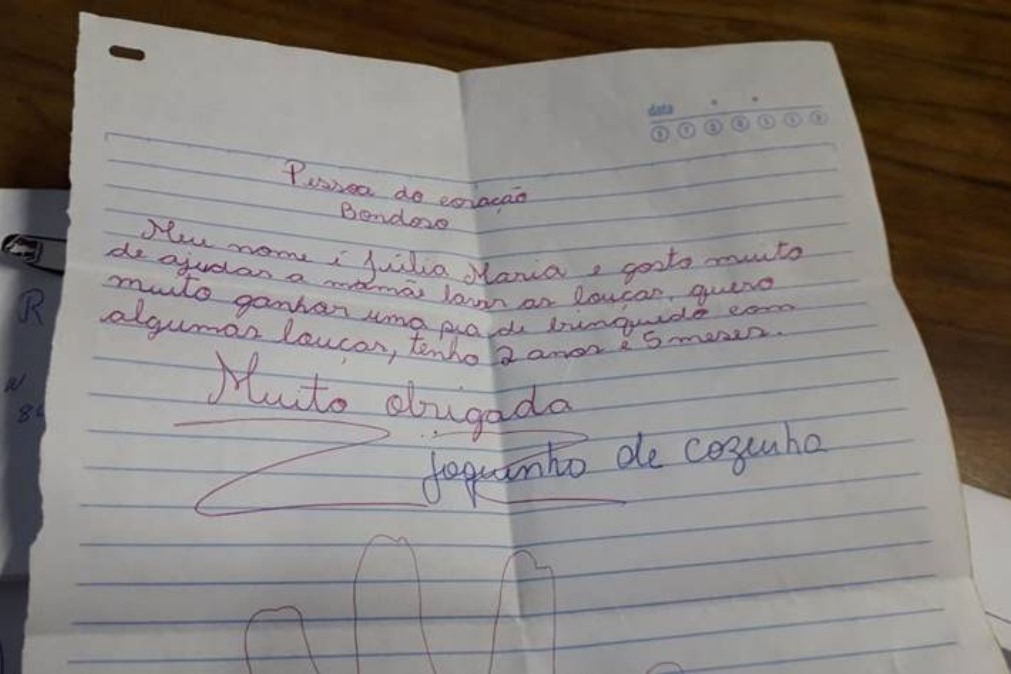 data
Pessoa do coração
Bondoso
Meu nome é Júlia Maria e gosto muito
de ajudar a mamãe lavar as louças, quero
muito ganhar uma pia de brinquedo com
algumas louças, tenho 2 anos e 5 meses.
Muito obrigada
joguinho de cozinha
R